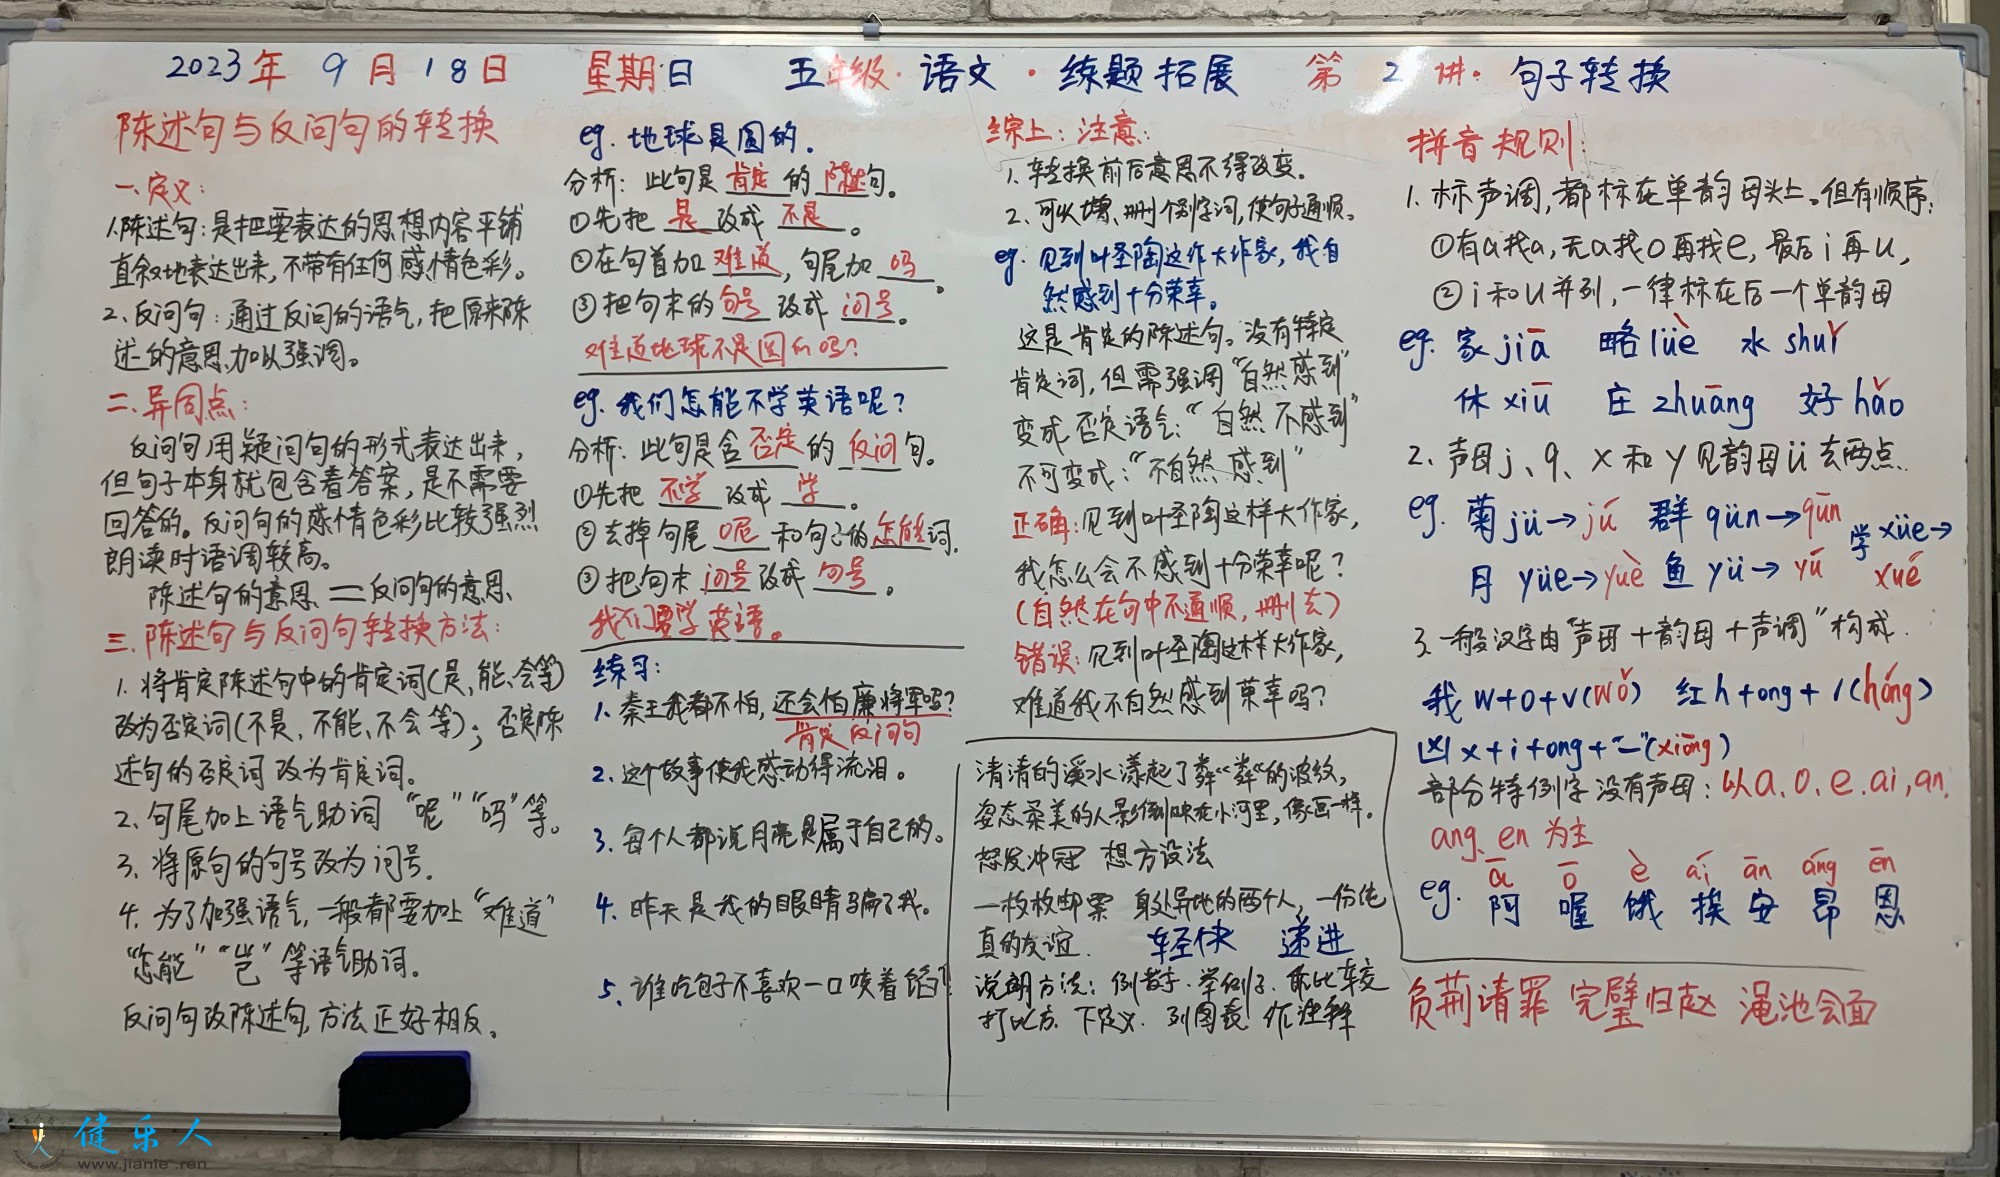 2023年 9月18日 星期日 五年级·语文·练题拓展 第2讲·句子转换
陈述句与反问句的转换
一、定义:
1.陈述句:是把要表达的思想内容平铺
直叙地表达出来,不带有任何感情色彩。
2、反问句:通过反问的语气,把原来陈
述的意思加以强调。
二、异同点:
反问句用疑问句的形式表达出来,
但句子本身就包含着答案,是不需要
回答的。反问句的感情色彩比较强烈
朗读时语调较高。
陈述句的意思 = 反问句的意思、
三、陈述句与反问句转换方法:
1.将肯定陈述句中的肯定词(是,能、会等)
改为否定词(不是、不能、不会等);否定陈
述句的否定词改为肯定词。
2、句尾加上语气助词“呢”“吗”等。
3、将原句的句号改为问号.
4.为了加强语气,一般都要加上“难道”
“怎能”“岂”等语气助词.
反问句改陈述句,方法正好相反。
eg.地球是圆的.
分析:此句是 肯定 的 陈述 句。
①先把 是 改成 不是 。
②在句首加 难道 ,句尾加 吗 。
③把句末的 句号 改成 问号 。
难道地球不是圆的吗?
eg.我们怎能不学英语呢?
分析:此句是含 否定 的 反问 句。
①先把 不学 改成 学 。
②去掉句尾 呢 和句子的 怎能 词.
③把句末 问号 改成 句号 。
我们要学英语。
练习:
1.秦王我都不怕,还会怕廉将军吗?
肯定反问句
2.这个故事使我感动得流泪。
3.每个人都说月亮是属于自己的。
4.昨天是我的眼睛骗了我。
5.谁吃包子不喜欢一口咬着馅?
综上:注意:
1.转换前后意思不得改变.
2.可以增、删个别字词,使句子通顺。
eg.见到叶圣陶这作大作家,我自
然感到十分荣幸。
这是肯定的陈述句。没有特定
肯定词,但需强调“自然感到”
变成否定语气:“自然不感到”
不可变成:“不自然感到”
正确:见到叶圣陶这样大作家,
我怎么会不感到十分荣幸呢?
(自然在句中不通顺,删去)
错误:见到叶圣陶这样大作家,
难道我不自然感到荣幸吗?
清清的溪水漾起了粼粼的波纹,
姿态柔美的人影倒映在小河里,像画一样.
怒发冲冠 想方设法
一枚枚邮票 身处异地的两个人,一份纯
真的友谊. 轻快 递进
说明方法: 列数字.举例子.作比较
打比方.下定义.列图表 作诠释
拼音规则:
1.标声调,都标在单韵母头上。但有顺序:
①有a找a,无a找o再找e,最后i再u,
②i和u并列,一律标在后一个单韵母
eg.家jiā 略lüè 水shuǐ
休xiū 庄zhuāng 好hǎo
2、声母j、q、x和y见韵母ü去两点.
eg.菊jü→jú 群qün→qūn 学xüe→
月yüe→yuè 鱼yü→yú xué
3.一般汉字由“声母+韵母+声调”构成.
我w+o+ˇ(wǒ) 红h+ong+ˊ(hóng)
凶x+i+ong+“ー”(xiōng)
部分特例字没有声母:以a.o.e.ai,an,
ang、en为主
ā ō è ái ān áng ēn
eg. 阿 喔 饿 挨 安 昂 恩
负荆请罪 完璧归赵 渑池会面
健乐人
www.jianle.ren